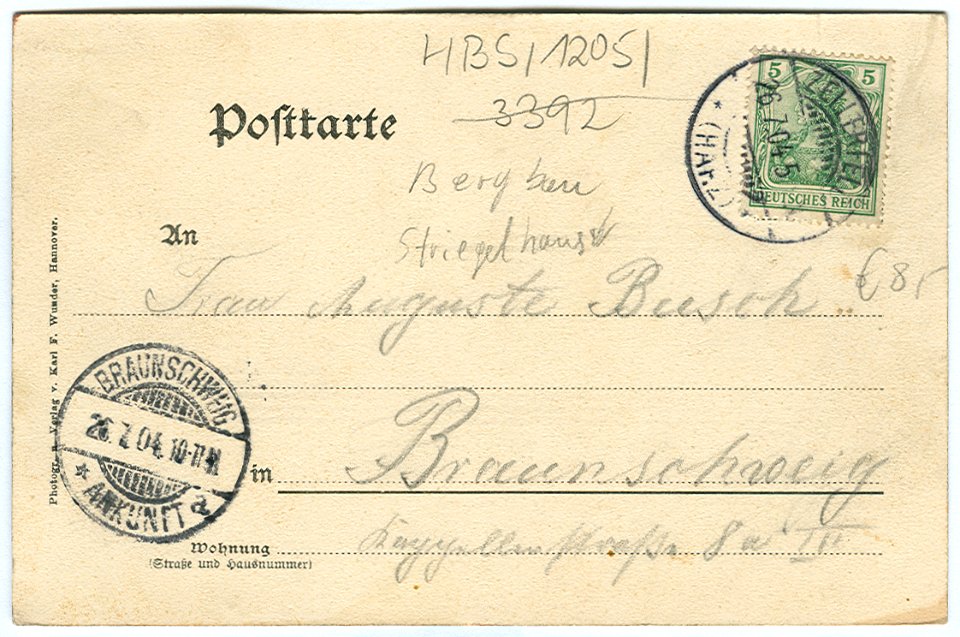 HBS/1205/
3392
Postkarte
5 5
ZELLERFELD
26.7.04.5
* (HARZ) *
DEUTSCHES REICH
Bergbau
Striegelhaus
An
€ 8,-
Frau Auguste Busch
Photogr. u. Verlag v. Karl F. Wunder, Hannover.
BRAUNSCHWEIG
26.7.04.10-11N.
* ANKUNFT a
in Braunschweig
Wohnung Kappellenstraße 8a III
(Straße und Hausnummer)